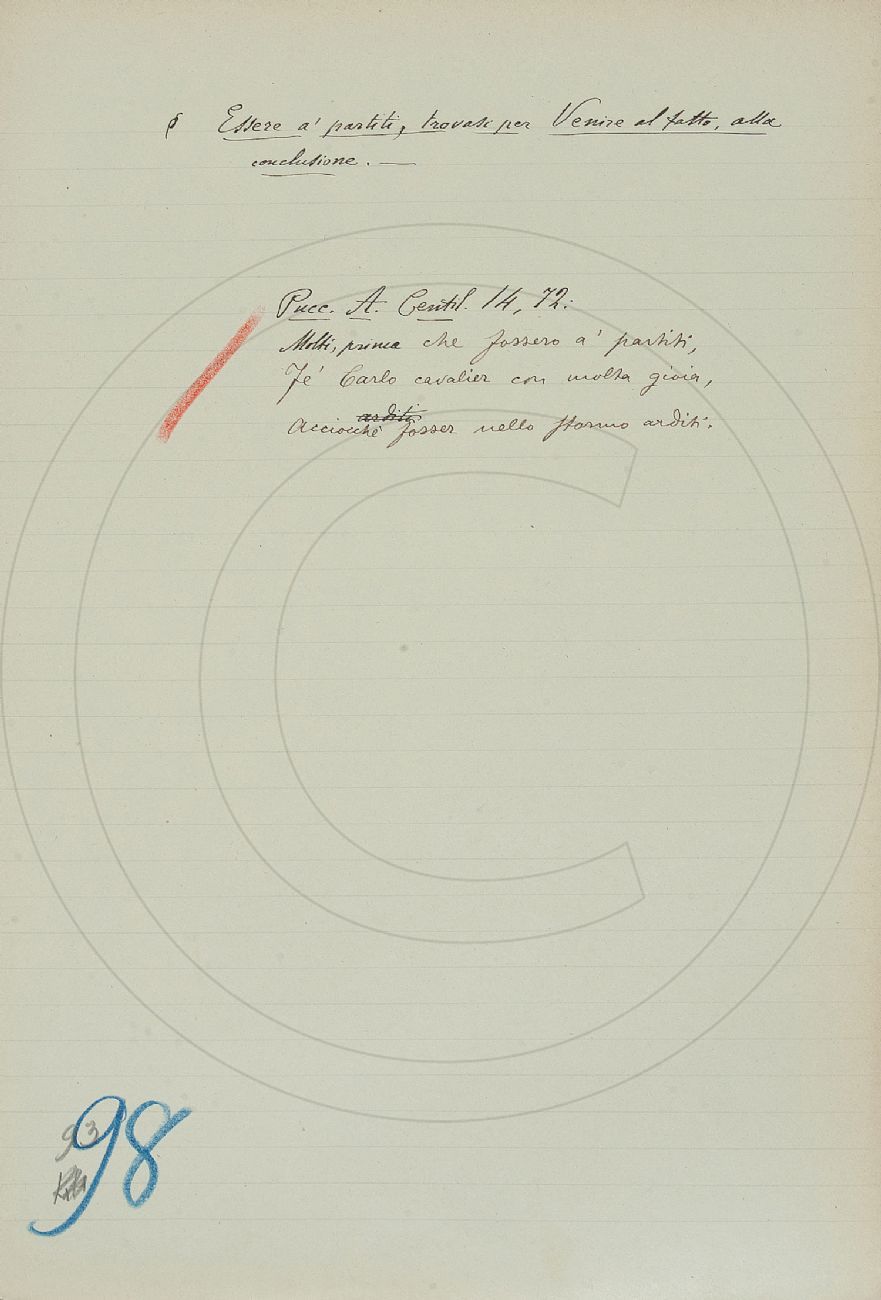 § Essere a' partiti, trovasi per Venire al fatto, alla
conclusione. —
Pucc. A. Centil. 14, 72:
Molti, prima che fossero a' partiti,
Fe' Carlo cavalier con molta gioia,
arditi
Acciocchè fosser nello stormo arditi.
93
98